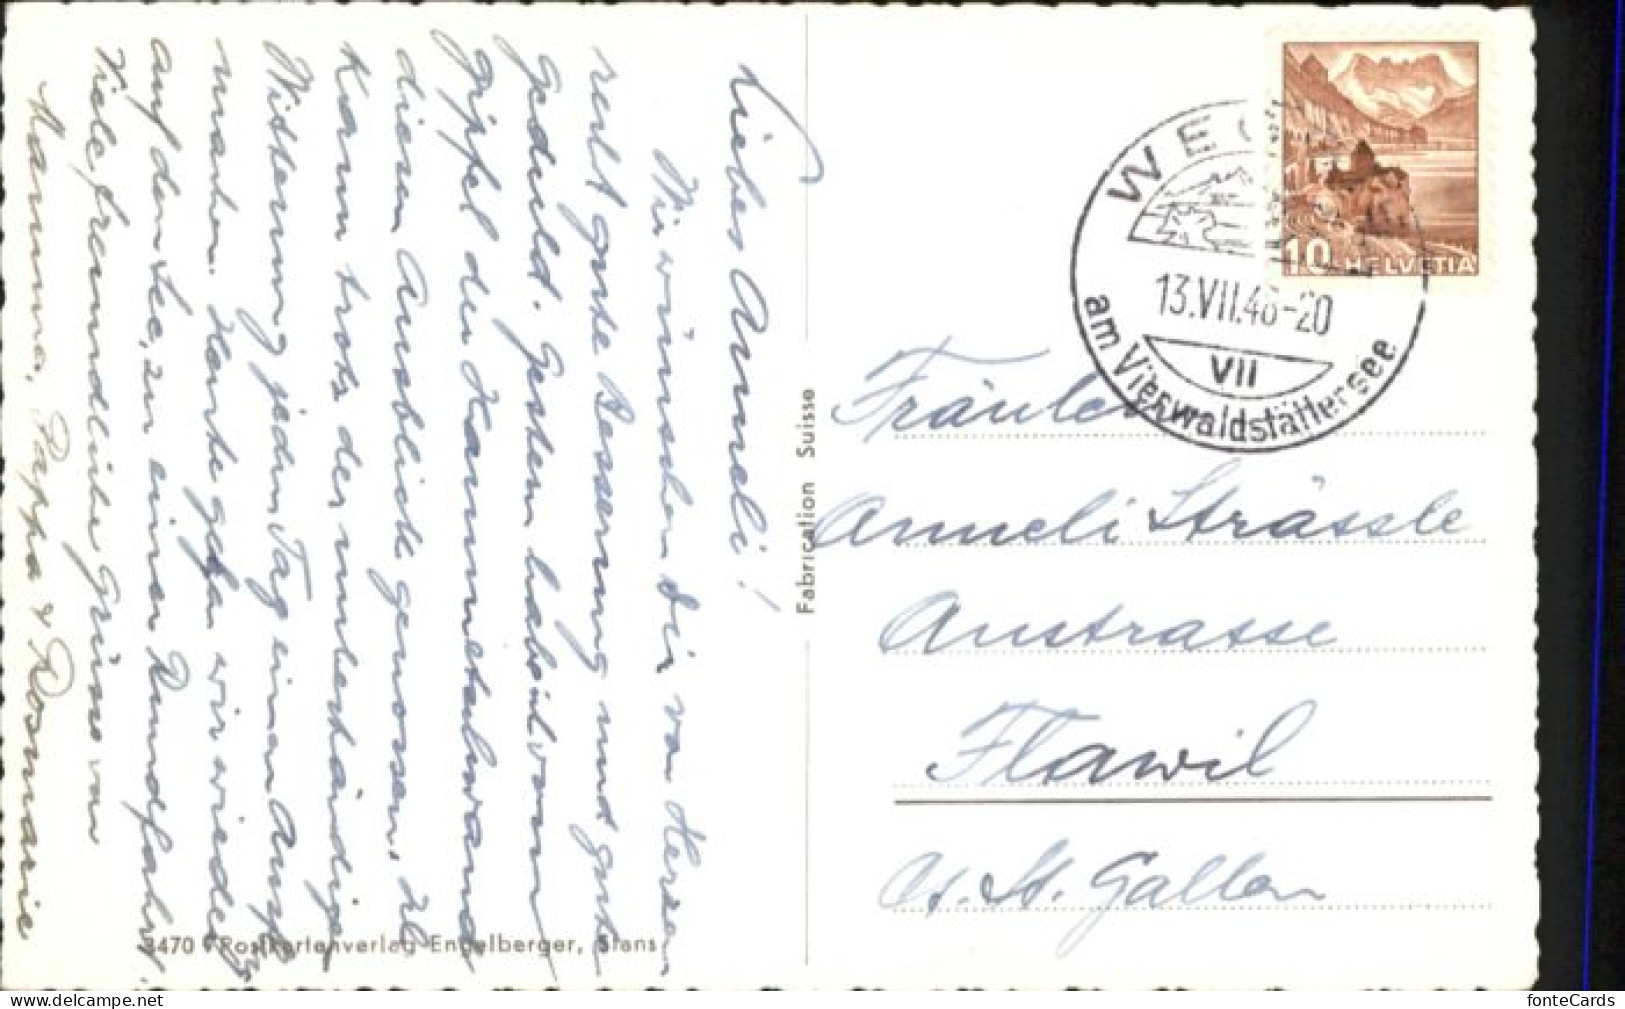 Liebes Anneli!
Wir wünschen Dir von Herzen
recht gute Besserung und gute
Geduld. Gestern haben wir vom
Gipfel der Hammetschwand
diesen Ausblick genossen. Ich
kann trotz der unbeständigen
Witterung jeden Tag einen Ausflug
machen. Heute gehen wir wieder
auf den See, zu einer Rundfahrt.
Viele freundliche Grüsse von
Mamma, Pappa & Rosmarie
3470 Postkartenverlag Engelberger, Stans
Fabrication Suisse
10 HELVETIA
13.VII.48-20
VII
am Vierwaldstättersee
Fräulein
Anneli Strässle
Austrasse
Flawil
Ct. St. Gallen
fonteCards